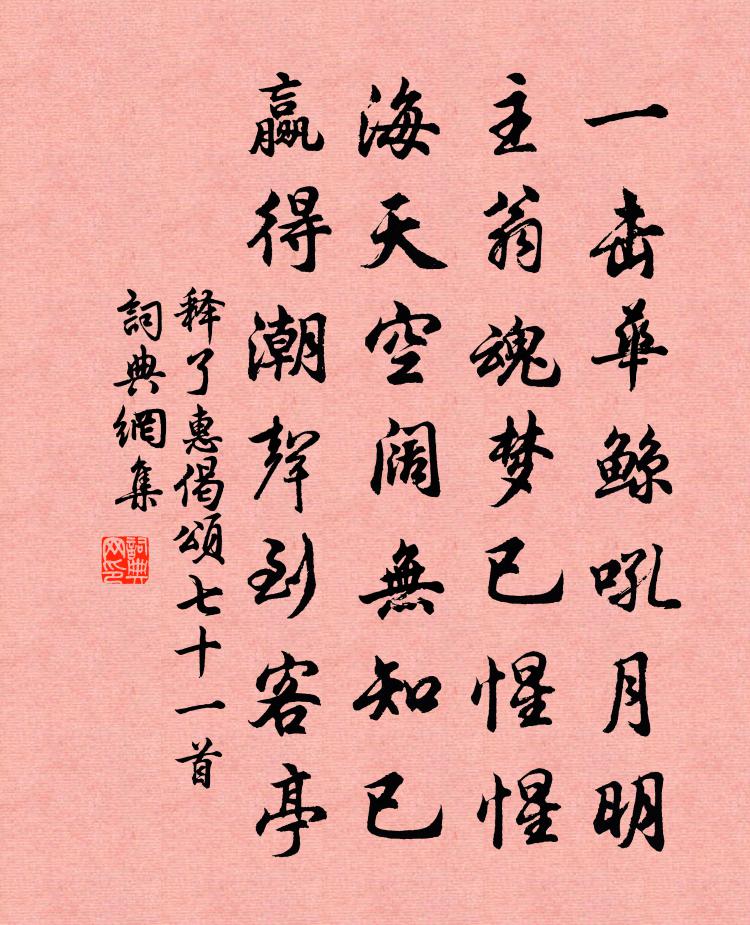 一击華鲸吼月明
主翁魂梦已惺惺
海天空阔無知已
赢得潮聲到客亭
释了惠偈頌七十一首
詞典網集
詞典网印